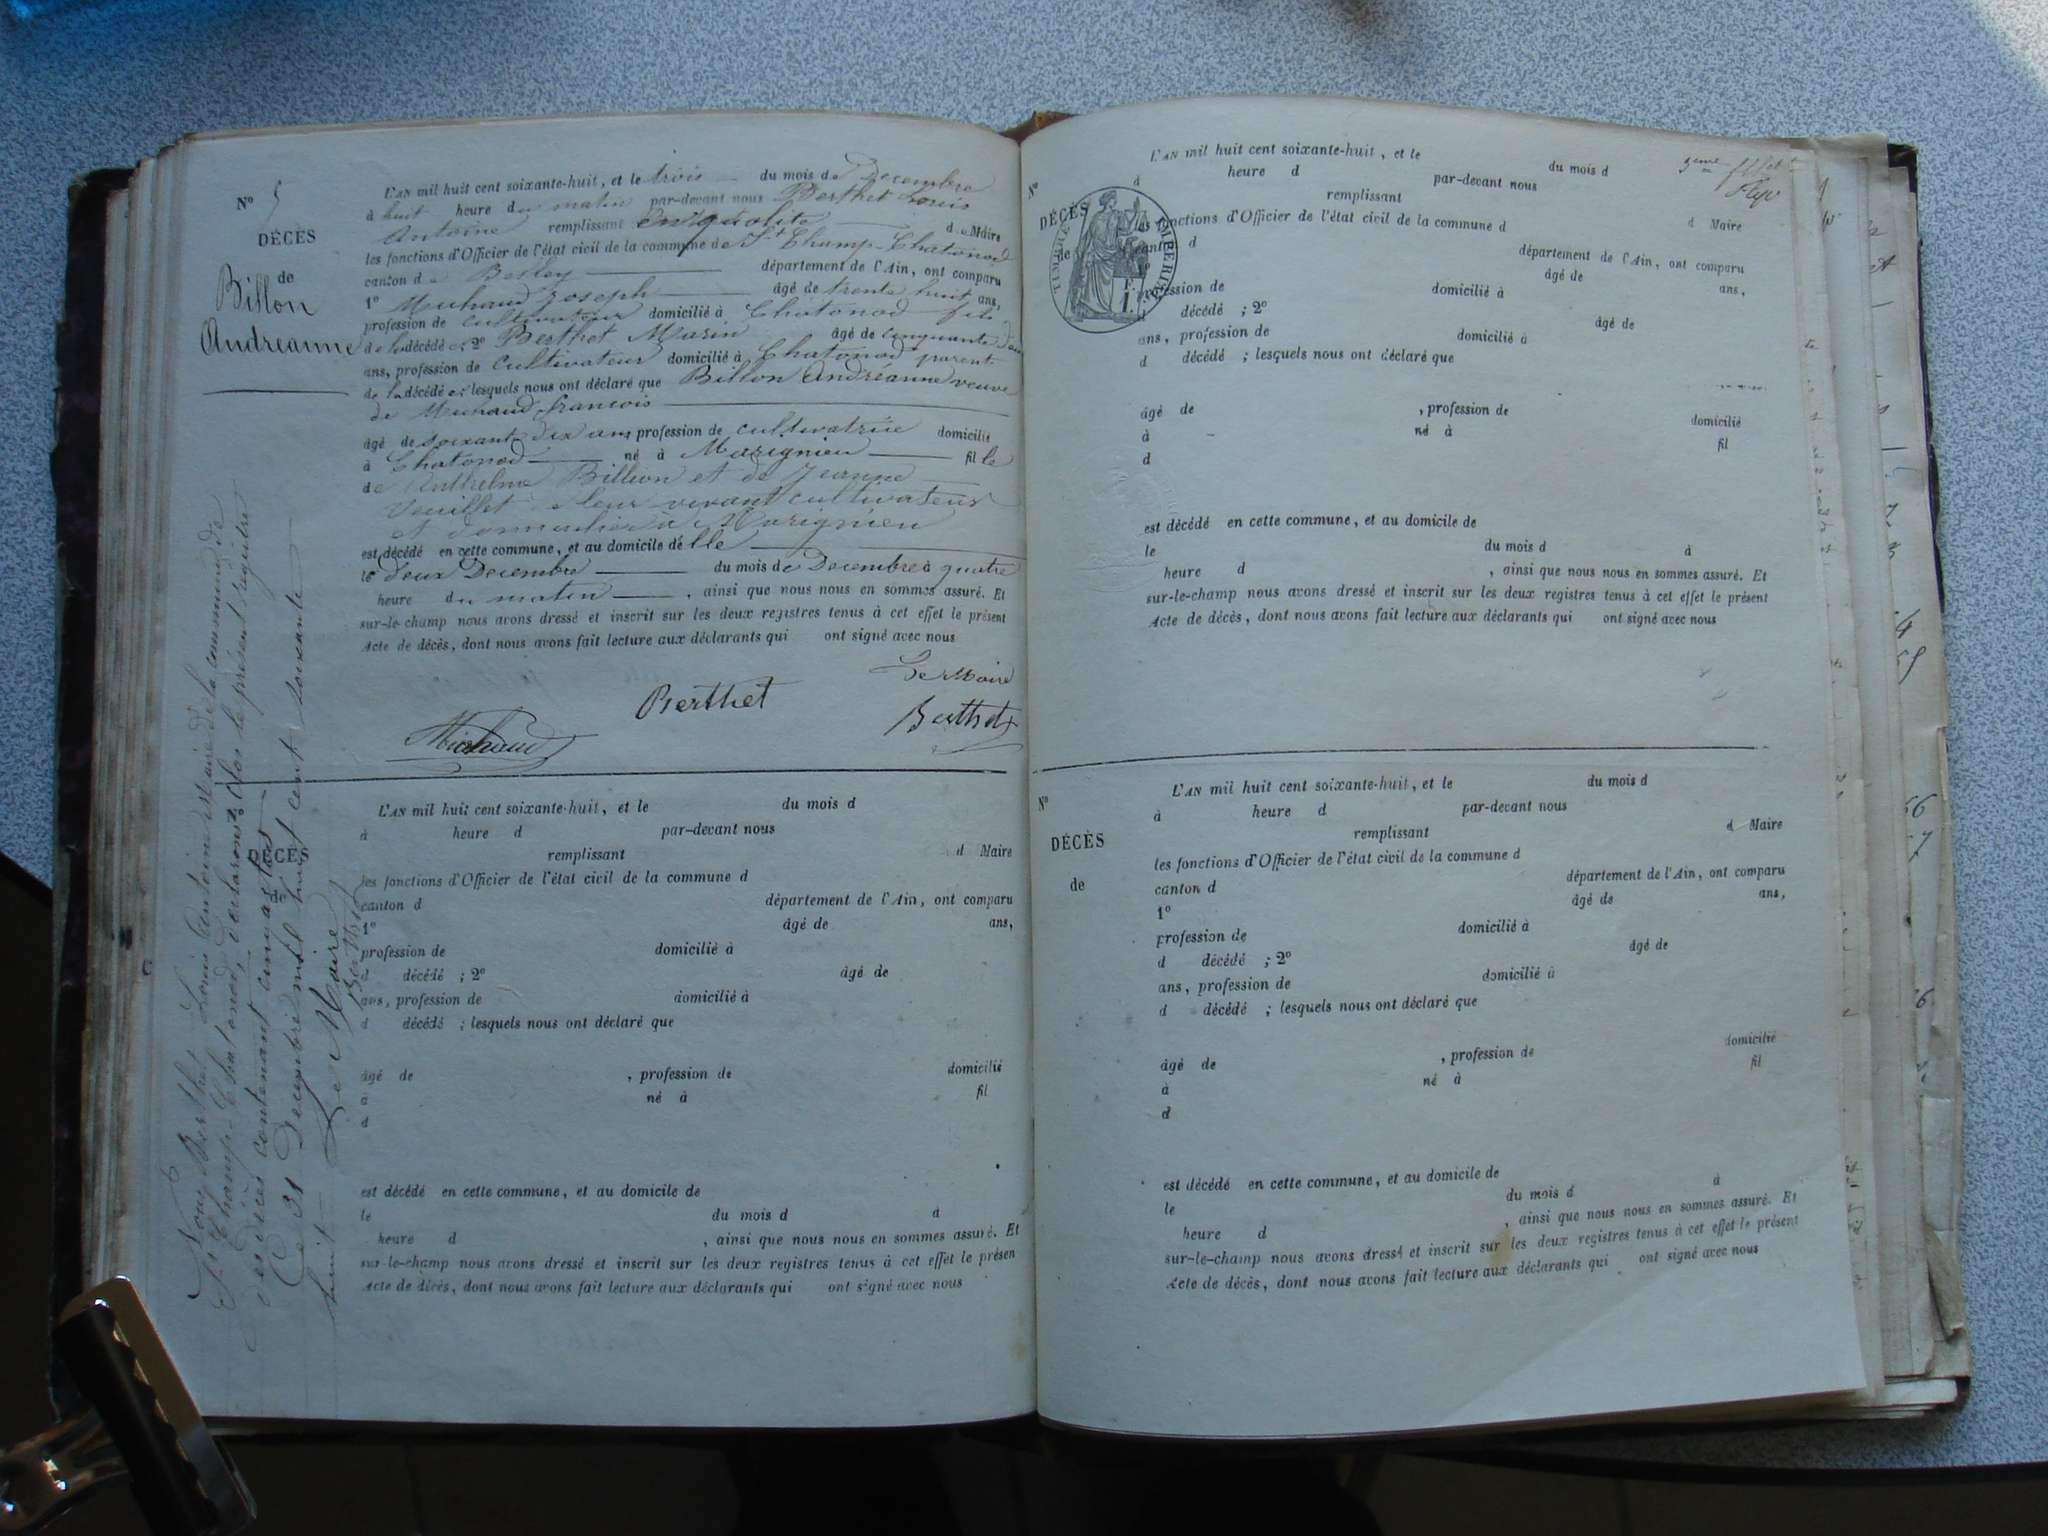 N° 5
DÉCÈS
de
Billon
Andréanne
L'AN mil huit cent soixante-huit, et le trois du mois de Decembre
à huit heure du matin par-devant nous Berthet Louis
Antoine remplissant d e Maire
les fonctions d'Officier de l'état civil de la commune de St Champ-Chatonod
canton de Belley département de l'Ain, ont comparu
1° Michaud Joseph âgé de trente huit ans,
profession de cultivateur domicilié à Chatonod fils
de la décédée; 2° Berthet Marin âgé de cinquante deux
ans, profession de cultivateur domicilié à Chatonod parent
de la décédée; lesquels nous ont déclaré que Billon Andréanne veuve
de Michaud françois
âgé de soixante dix ans profession de cultivatrice domicilié
à Chatonod né à Marignieu fille
de Anthelme Billion et de Jeanne
Vuillet leur vivant cultivateurs
et domiciliés à Marignieu
est décédé en cette commune, et au domicile d'elle
le deux Decembre du mois de Decembre à quatre
heure du matin, ainsi que nous nous en sommes assuré. Et
sur-le-champ nous avons dressé et inscrit sur les deux registres tenus à cet effet le présent
Acte de décès, dont nous avons fait lecture aux déclarants qui ont signé avec nous
Le Maire
Berthet
Berthet
Michaud
L'AN mil huit cent soixante-huit, et le du mois d
à heure d par-devant nous
remplissant d Maire
DÉCÈS
de
les fonctions d'Officier de l'état civil de la commune d
canton d département de l'Ain, ont comparu
1° âgé de ans,
profession de domicilié à
d décédé ; 2° âgé de
ans, profession de domicilié à
d décédé ; lesquels nous ont déclaré que
âgé de , profession de domicilié
à né à fil
d
est décédé en cette commune, et au domicile de
le du mois d à
heure d , ainsi que nous nous en sommes assuré. Et
sur-le-champ nous avons dressé et inscrit sur les deux registres tenus à cet effet le présen
Acte de décès, dont nous avons fait lecture aux déclarants qui ont signé avec nous
Nous Berthet Louis Antoine maire de la commune de
St Champ-Chatonod, declarons clos le présent registre
des décès contenant cinq actes
Ce 31 Decembre mil huit cent soixante
huit
Le Maire
Berthet
L'AN mil huit cent soixante-huit, et le du mois d
N° à heure d par-devant nous
DÉCÈS remplissant
les fonctions d'Officier de l'état civil de la commune d d Maire
de
TIMBRE IMPÉRIAL
canton d département de l'Ain, ont comparu
âgé de ans,
profession de domicilié à
d décédé ; 2° âgé de
ans, profession de domicilié à
d décédé ; lesquels nous ont déclaré que
âgé de , profession de domicilié
à né à fil
d
est décédé en cette commune, et au domicile de
le du mois d à
heure d , ainsi que nous nous en sommes assuré. Et
sur-le-champ nous avons dressé et inscrit sur les deux registres tenus à cet effet le présent
Acte de décès, dont nous avons fait lecture aux déclarants qui ont signé avec nous
L'AN mil huit cent soixante-huit, et le du mois d
N° à heure d par-devant nous
DÉCÈS remplissant d Maire
de
les fonctions d'Officier de l'état civil de la commune d
canton d département de l'Ain, ont comparu
1° âgé de ans,
profession de domicilié à
d décédé ; 2° âgé de
ans, profession de domicilié à
d décédé ; lesquels nous ont déclaré que
âgé de , profession de domicilié
à né à fil
d
est décédé en cette commune, et au domicile de
le du mois d à
heure d , ainsi que nous nous en sommes assuré. Et
sur-le-champ nous avons dressé et inscrit sur les deux registres tenus à cet effet le présent
Acte de décès, dont nous avons fait lecture aux déclarants qui ont signé avec nous